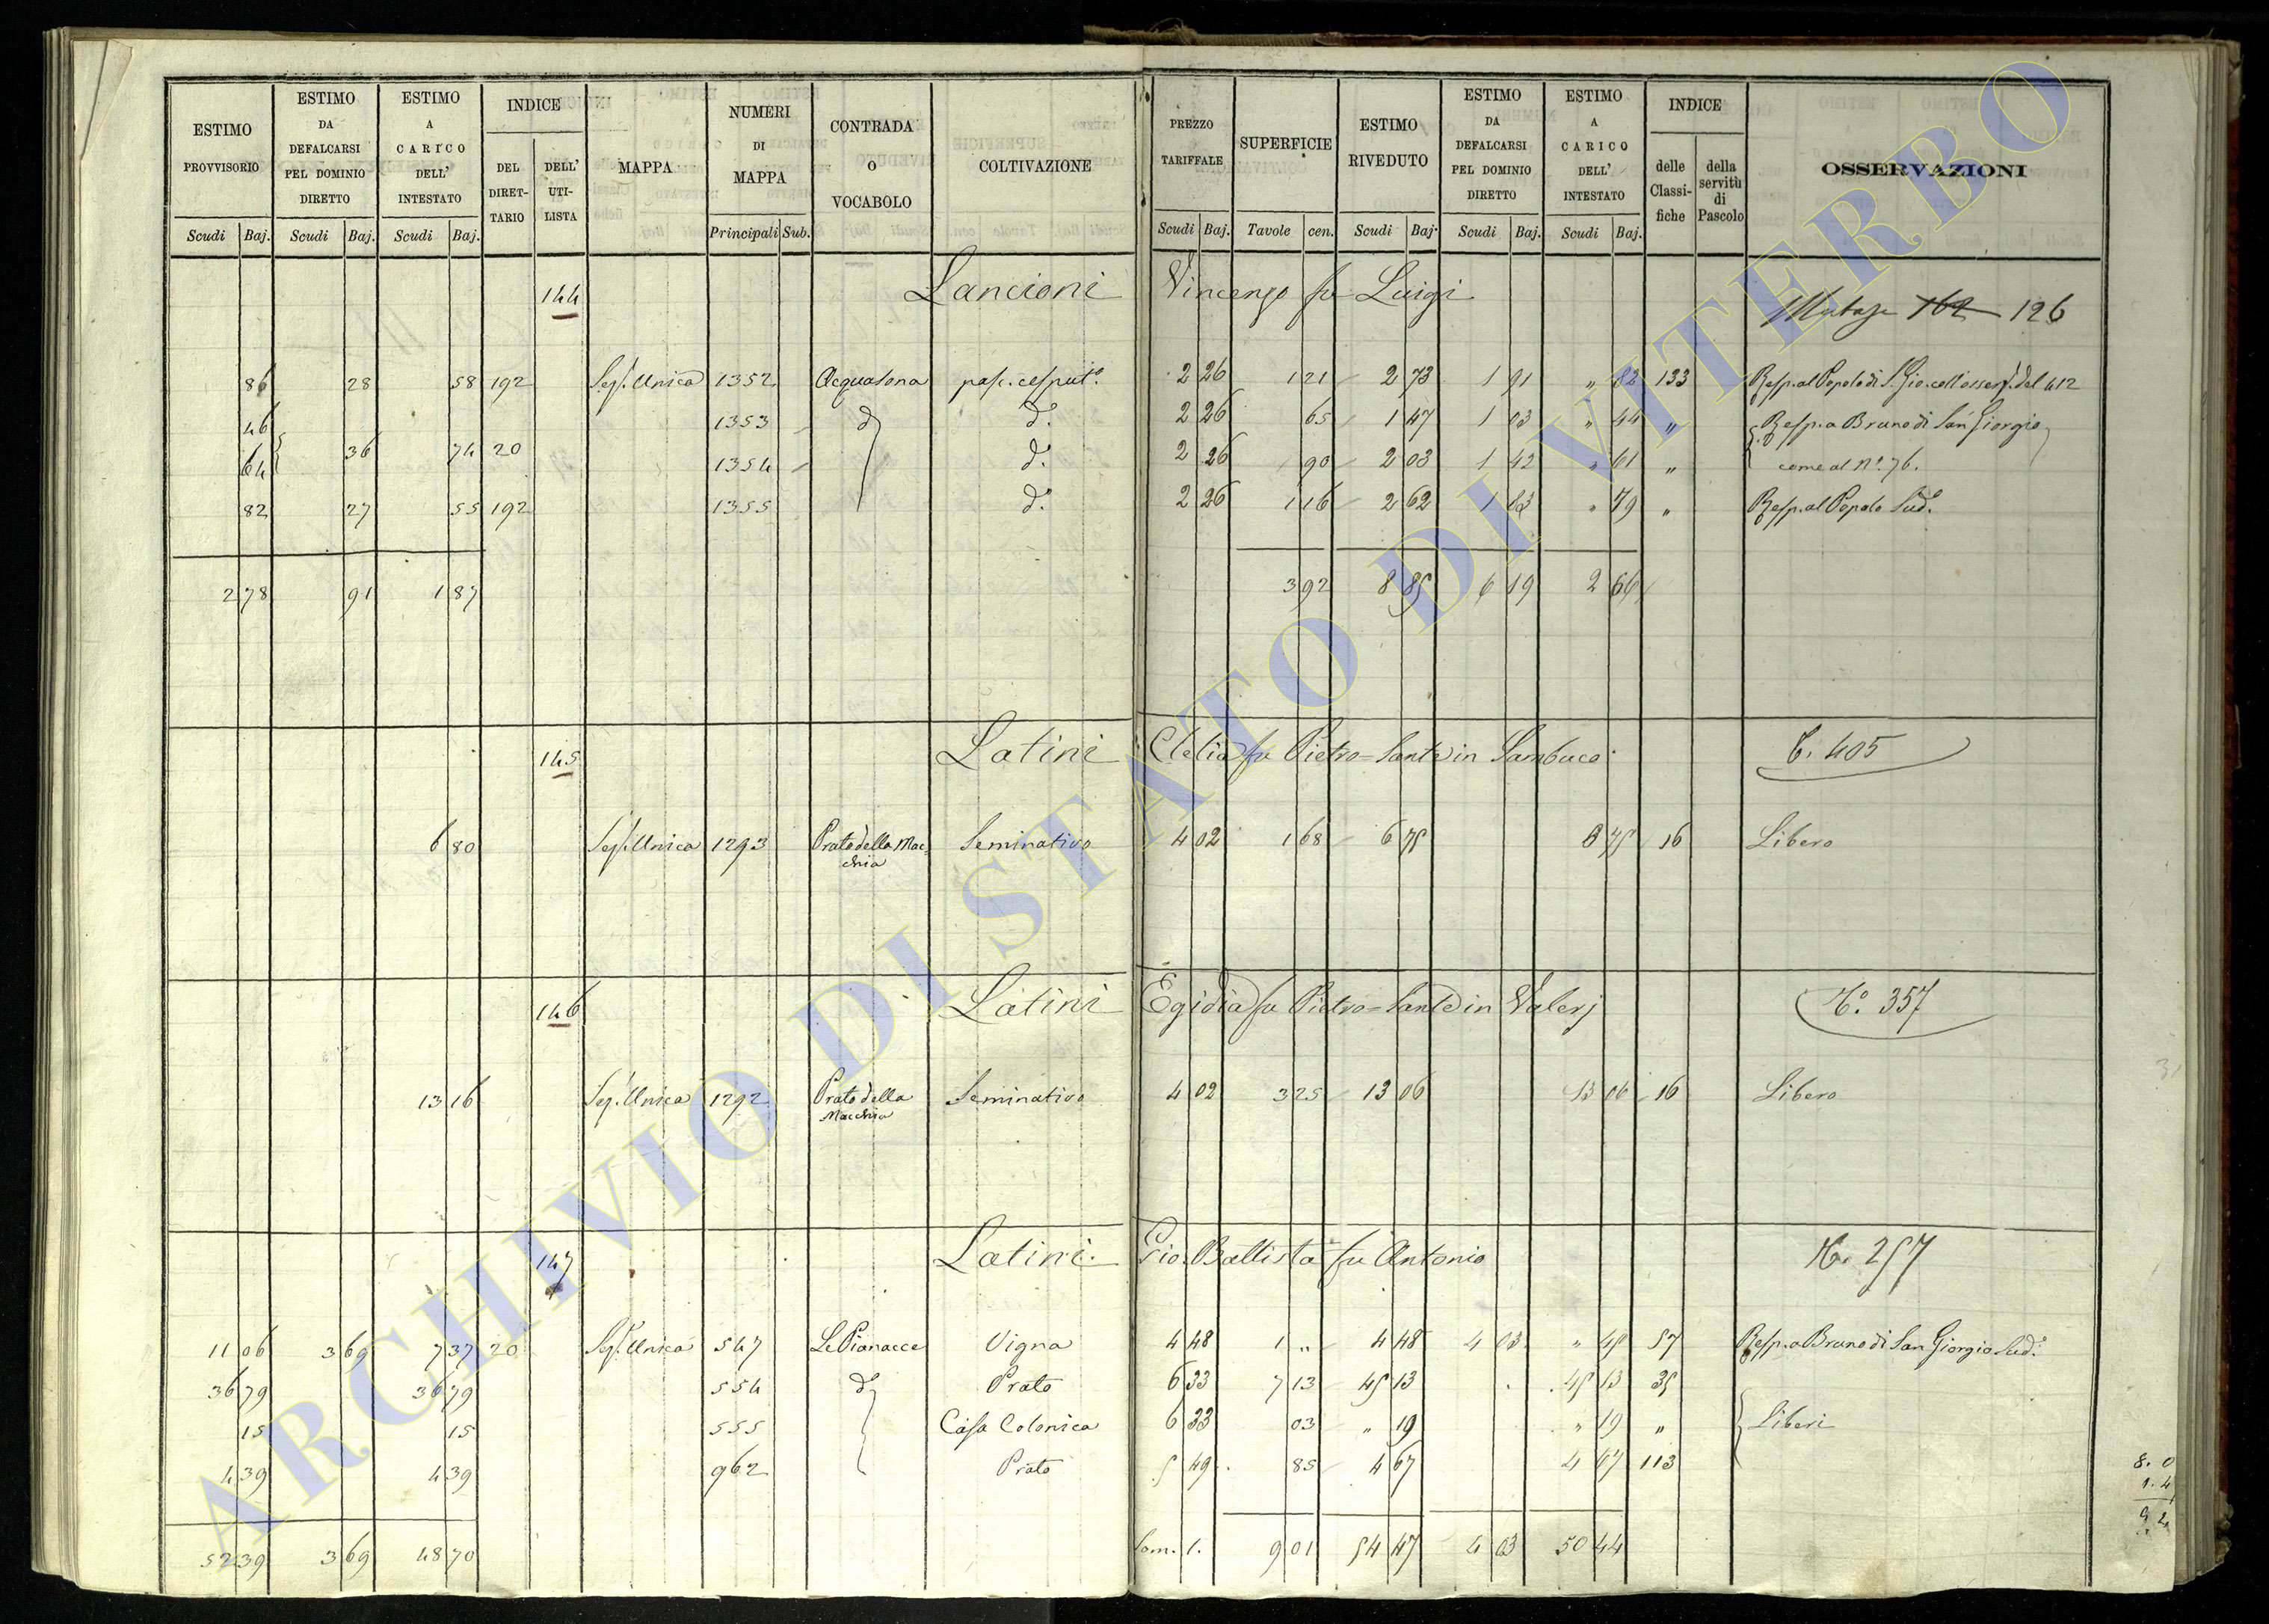 ESTIMO PROVVISORIO | ESTIMO DA DEFALCARSI PEL DOMINIO DIRETTO | ESTIMO A CARICO DELL' INTESTATO | INDICE DEL DIRETTARIO | DELL' UTILISTA | MAPPA | NUMERI DI MAPPA | CONTRADA O VOCABOLO | COLTIVAZIONE | PREZZO TARIFFALE | SUPERFICIE | ESTIMO RIVEDUTO | ESTIMO DA DEFALCARSI PEL DOMINIO DIRETTO | ESTIMO A CARICO DELL' INTESTATO | INDICE delle Classifiche | della servitù di Pascolo | OSSERVAZIONI
Scudi Baj. Scudi Baj. Scudi Baj. Principali Sub. Scudi Baj. Tavole cen. Scudi Baj. Scudi Baj. Scudi Baj.
144 Lancioni Vincenzo fu Luigi
126
86 28 58 192 Sez. Unica 1352 Acquasona pasc. cesput.o 2 26 1 21 2 73 1 91 " 82 133 Resp. al Popolo di S. Gio. coll'osserv. del 412
46 1353 d.o d.o 2 26 65 1 47 1 03 " 44 " Resp. a Bruno di San Giorgio
64 36 74 20 1354 d.o 2 26 90 2 03 1 42 " 61 " come al N.o 76.
82 27 55 192 1355 d.o 2 26 1 16 2 62 1 83 " 79 " Resp. al Popolo Sud.o
2 78 91 1 87 3 92 8 85 6 19 2 66
145 Latini Clelia fu Pietro=Sante in Sambuco
405
6 80 Sez. Unica 1293 Prato della Mac=chia Seminativo 4 02 1 68 6 75 6 75 16 Libero
146 Latini Egidia fu Pietro=Sante in Valerj
N.o 357
13 16 Sez. Unica 1292 Prato della Macchia Seminativo 4 02 3 25 13 06 13 06 16 Libero
147 Latini Gio. Battista fu Antonio
N. 257
11 06 3 69 7 37 20 Sez. Unica 547 Le Pianacce Vigna 4 48 1 " 4 48 4 03 " 45 57 Resp. a Bruno di San Giorgio Sud.o
36 79 36 79 554 d.o Prato 6 33 7 13 45 13 45 13 35
15 15 555 Casa Colonica 6 33 03 " 19 " 19 " Liberi
4 39 4 39 962 Prato 5 49 85 4 67 4 67 113
52 39 3 69 48 70 Som. 1. 9 01 54 47 4 03 50 44
ARCHIVIO DI STATO DI VITERBO